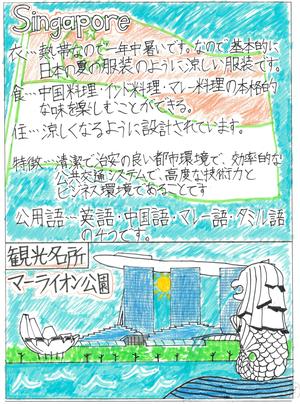 Singapore
衣…熱帯なので一年中暑いです。なので基本的に
日本の夏の服装のように涼しい服装です。
食…中国料理・インド料理・マレー料理の本格的
な味を楽しむことができる。
住…涼しくなるように設計されています。
特徴…清潔で治安の良い都市環境で、効率的な
公共交通システムで、高度な技術力と
ビジネス環境であることです
公用語…英語・中国語・マレー語・タミル語
の4つです。
観光名所
マーライオン公園